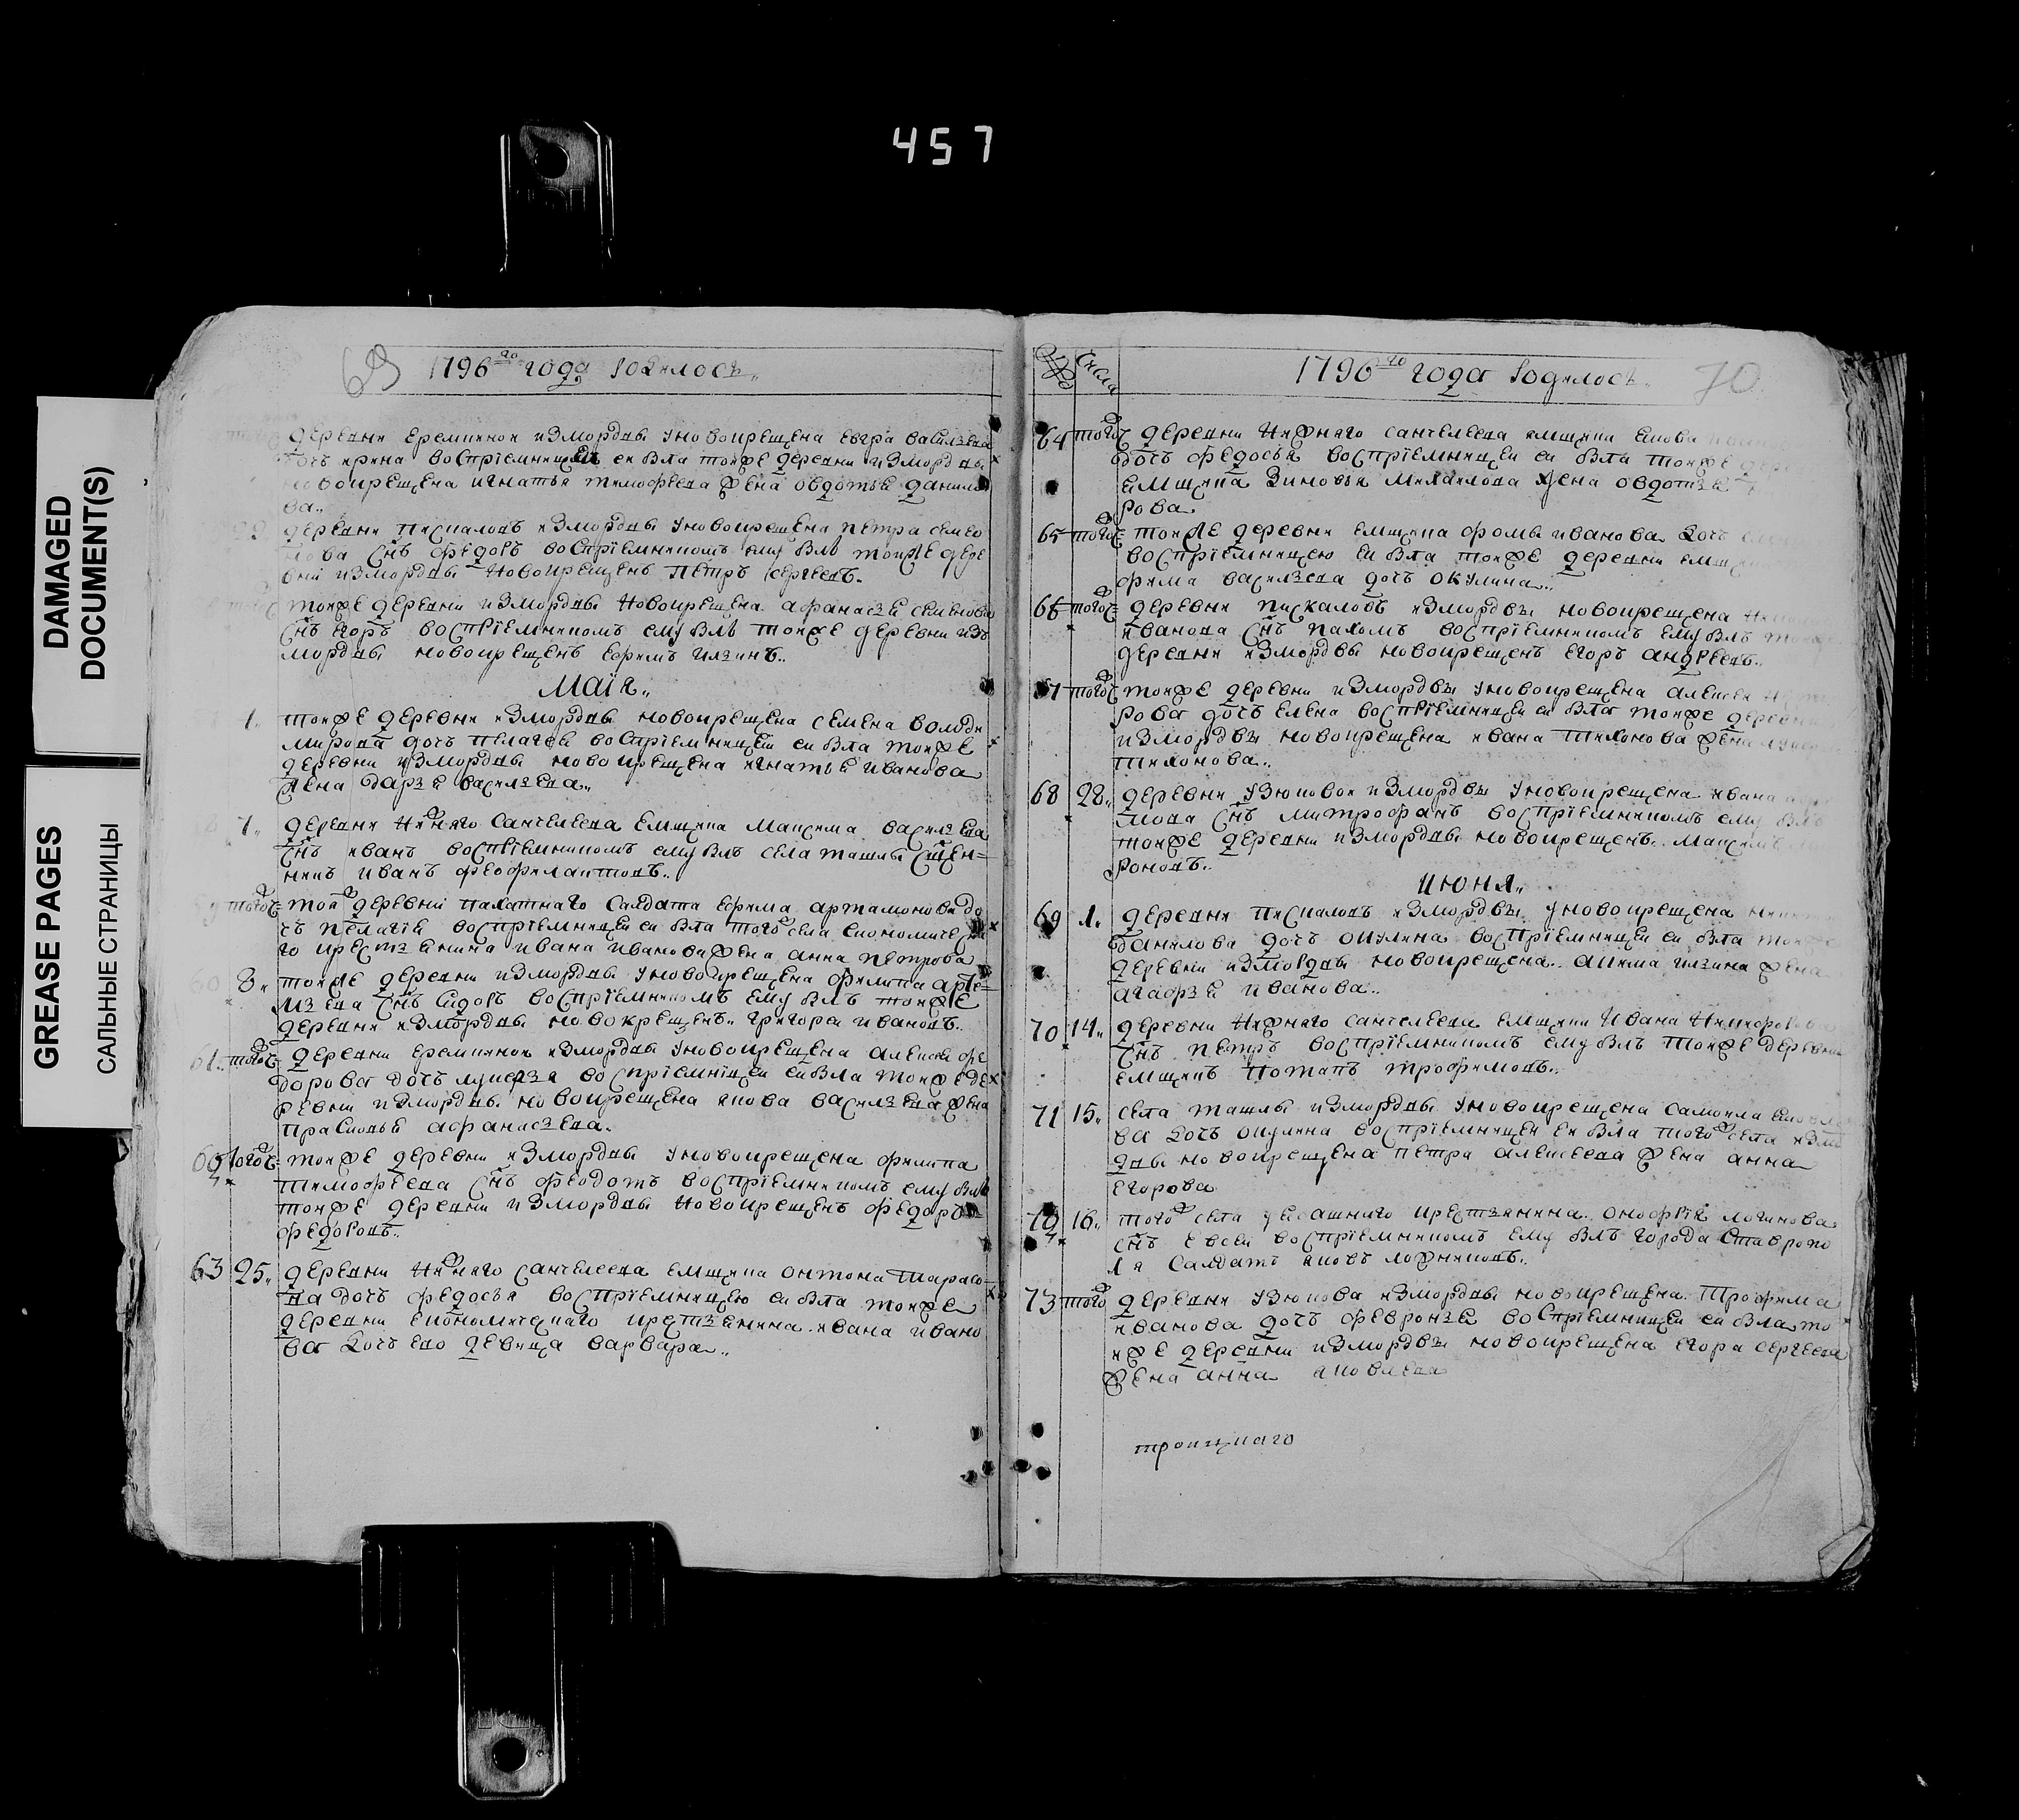 457
DAMAGED
DOCUMENT(S)
GREASE PAGES
САЛЬНЫЕ СТРАНИЦЫ
69
1796го года родилось
деревни Еремкиной измордвы уновокрещена Егора васильева
дочь ирина восприемницей еи была тойже деревни измордвы
новокрещена игнатья тимофеева жена овдотья данило
ва
29 деревни Пискаловъ измордвы уновокрещена петра семео
нова снъ федоръ восприемникомъ ему былъ тойже дере
вни измордвы новокрещенъ Петръ сергеевъ
тойже деревни измордвы новокрещена афанасья семенова
снъ егоръ восприемникомъ ему былъ тойже деревни изъ
мордвы новокрещенъ ефимъ ильинъ
Маiя
1 тойже деревни измордвы новокрещена семена володи
мирова дочь пелагея восприемницей еи была тойже
деревни измордвы новокрещена игнатья иванова
жена дарья васильева
7 деревни нижняго Санчелеева емщика Максима васильева
снъ иванъ восприемникомъ ему былъ села ташлы сщен
никъ иванъ феофилактовъ
того тойже деревни пахатнаго салдата ефима артамонова до
чь пелагия восприемницей еи была тогож села економическа
го крестьянина ивана иванова жена анна петрова
60 8 тойже деревни измордвы уновокрещена филипа арте
мьева снъ сидоръ восприемникомъ ему былъ тойже
деревни измордвы новокрещенъ григореи ивановъ
61 тогож деревни еремкинои измордвы уновокрещена алексея фе
дорова дочь лукерья восприемницеи еи была тойже де
ревни измордвы новокрещена якова васильева жена
прасковья афанасьева
тогож тойже деревни измордвы уновокрещена филипа
тимофеева снъ феодотъ восприемникомъ ему былъ
тойже деревни измордвы новокрещенъ федоръ
федоровъ
63 25 деревни нижняго санчелеева емщика онтона тарасо
ва дочь федосья восприемницею еи была тойже
деревни економическаго крестьянина ивана ивано
ва дочь ево девица варвара
Числа
1796го года родилось
70
64 тогож деревни нижняго санчелеева емщика якова
дочь федосья восприемницеи еи была тойже
емщика Зиновья михаилова жена овдотья
рова
65 тогож тойже деревни емщика фомы иванова дочь
восприемницею еи была тойже деревни
фима васильева дочь окулина
66 тогож деревни пискаловъ измордвы новокрещена
иванова снъ пахомъ восприемникомъ ему былъ
деревни измордвы новокрещенъ егоръ андреевъ
67 тогож тойже деревни измордвы уновокрещена алексея
рова дочь елена восприемницеи еи была тойже деревни
измордвы новокрещена ивана тихонова жена
тихонова
68 28 деревни узюковои измордвы уновокрещена ивана
мова снъ митрофанъ восприемникомъ ему былъ
тойже деревни измордвы новокрещенъ Максимъ
роновъ
июня
69 1 деревни пискаловъ измордвы уновокрещена
данилова дочь окулина восприемницеи еи была тойже
деревни измордвы новокрещена акима ильина жена
агафья иванова
70 14 деревни нижняго санчелеева емщика Ивана Никифорова
снъ петръ восприемникомъ ему былъ тойже деревни
емщикъ потапъ трофимовъ
71 15 села ташлы измордвы уновокрещена самоила
ва дочь окулина восприемницеи еи была тогож села измо
рдвы новокрещена петра алексеева жена анна
егорова
16 тогож села ясашнаго крестьянина онофрия логинова
снъ евсеи восприемникомъ ему былъ города ставропо
ля салдатъ яковъ ложниковъ
73 тогож деревни узюкова измордвы новокрещена трофима
иванова дочь февронья восприемницеи еи была то
йже деревни измордвы новокрещена егора сергеева
жена анна яковлева
троицкаго